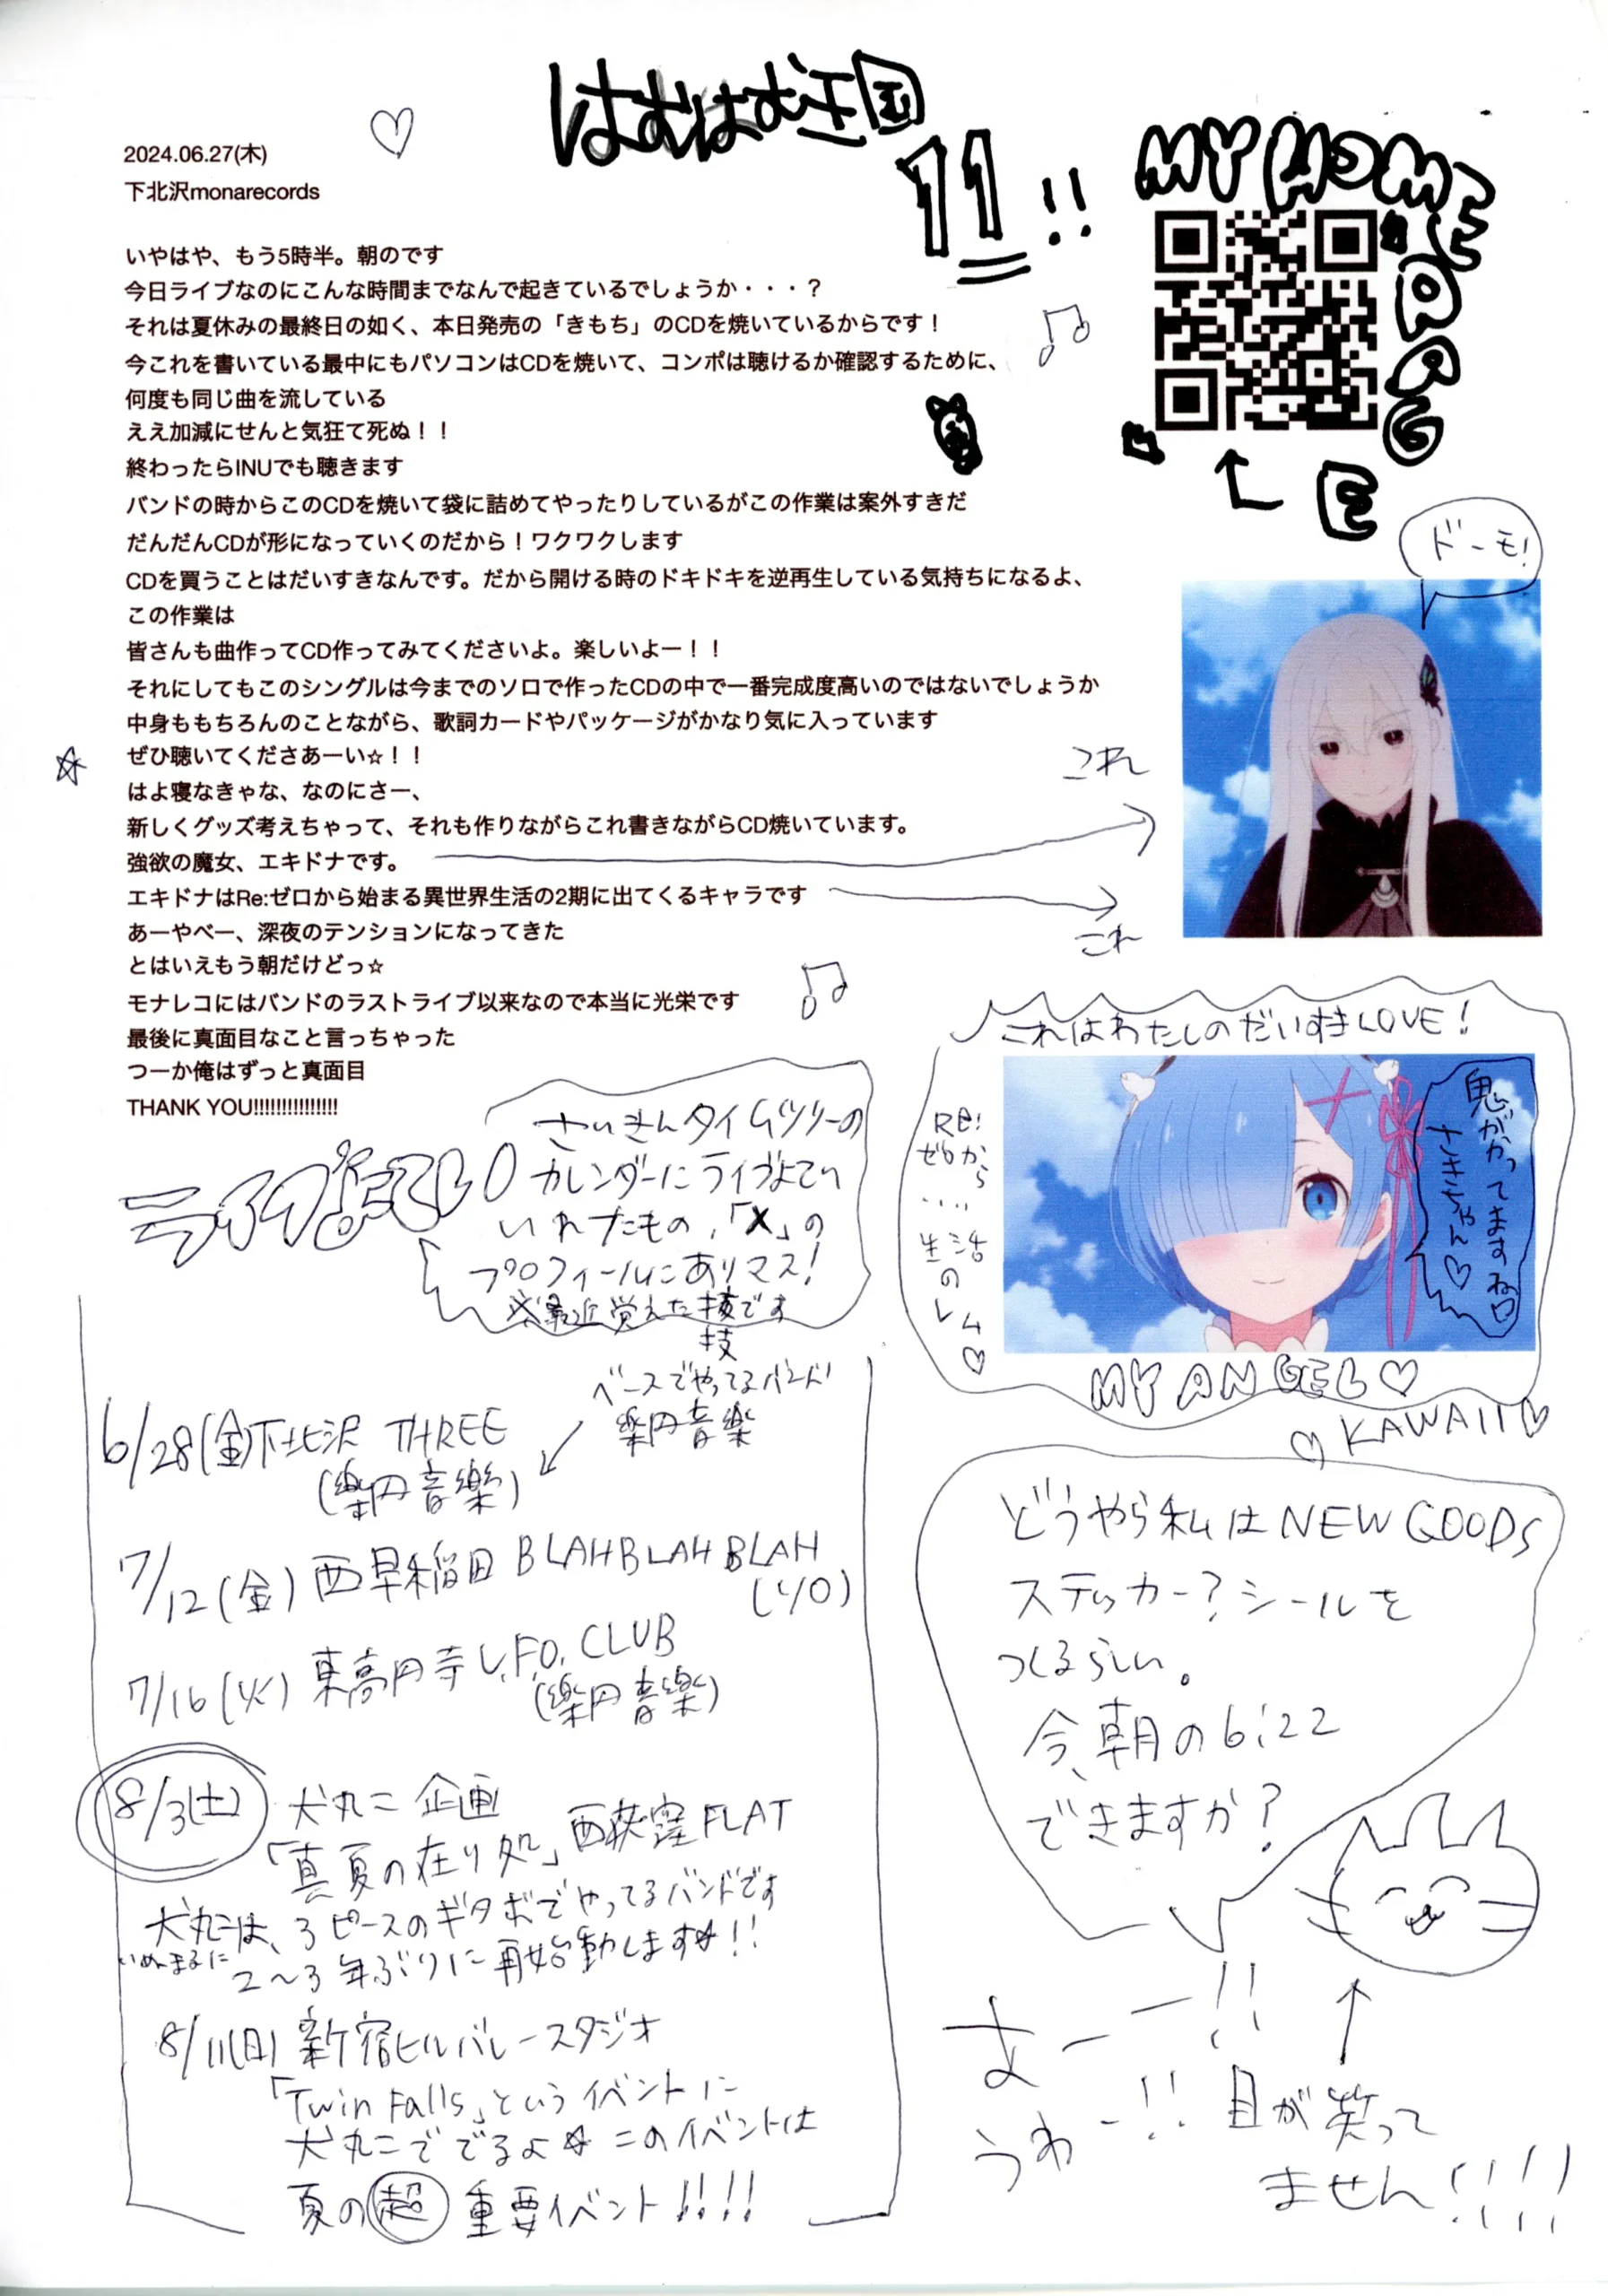 はむはむ王国
11!!
MY HOME PAGE
2024.06.27(木)
下北沢monarecords
いやはや、もう5時半。朝のです
今日ライブなのにこんな時間までなんで起きているでしょうか・・・？
それは夏休みの最終日の如く、本日発売の「きもち」のCDを焼いているからです！
今これを書いている最中にもパソコンはCDを焼いて、コンポは聴けるか確認するために、
何度も同じ曲を流している
ええ加減にせんと気狂て死ぬ！！
終わったらINUでも聴きます
バンドの時からこのCDを焼いて袋に詰めてやったりしているがこの作業は案外すきだ
だんだんCDが形になっていくのだから！ワクワクします
CDを買うことはだいすきなんです。だから開ける時のドキドキを逆再生している気持ちになるよ、
この作業は
皆さんも曲作ってCD作ってみてくださいよ。楽しいよー！！
それにしてもこのシングルは今までのソロで作ったCDの中で一番完成度高いのではないでしょうか
中身ももちろんのことながら、歌詞カードやパッケージがかなり気に入っています
ぜひ聴いてくださあーい☆！！
はよ寝なきゃな、なのにさー、
新しくグッズ考えちゃって、それも作りながらこれ書きながらCD焼いています。
強欲の魔女、エキドナです。
エキドナはRe:ゼロから始まる異世界生活の2期に出てくるキャラです
あーやべー、深夜のテンションになってきた
とはいえもう朝だけどっ☆
モナレコにはバンドのラストライブ以来なので本当に光栄です
最後に真面目なこと言っちゃった
つーか俺はずっと真面目
THANK YOU!!!!!!!!!!!!!!!
ドーモ!
これ
これ
これはわたしのだいすきLOVE!
Re!
ゼロから
...
生活
の
レム♡
鬼がかってますね
さきちゃん♡
MY ANGEL♡
♡KAWAII♡
さいきんタイムツリーの
カレンダーにライブよてい
いれたもの,「X」の
プロフィールにありマス!
※最近覚えた技です
技
ベースでやってるバンド!
楽円音楽
6/28(金)下北沢 THREE
(楽円音楽)
7/12(金)西早稲田 BLAHBLAHBLAH
(ソロ)
7/16(火)東高円寺 U.F.O. CLUB
(楽円音楽)
8/3(土) 犬丸ニ 企画
「真夏の在り処」西荻窪FLAT
犬丸ニは、3ピースのギタボでやってるバンドです
いぬまるに
2〜3年ぶりに再始動します☆!!
8/11(日)新宿ヒルバレースタジオ
「Twin Falls」というイベントに
犬丸ニででるよ☆このイベントは
夏の超重要イベント!!!!
どうやら私はNEW GOODS
ステッカー?シールを
つくるらしい。
今、朝の6:22
できますか?
さーー!!
うわー!!
目が笑って
ません!!!!